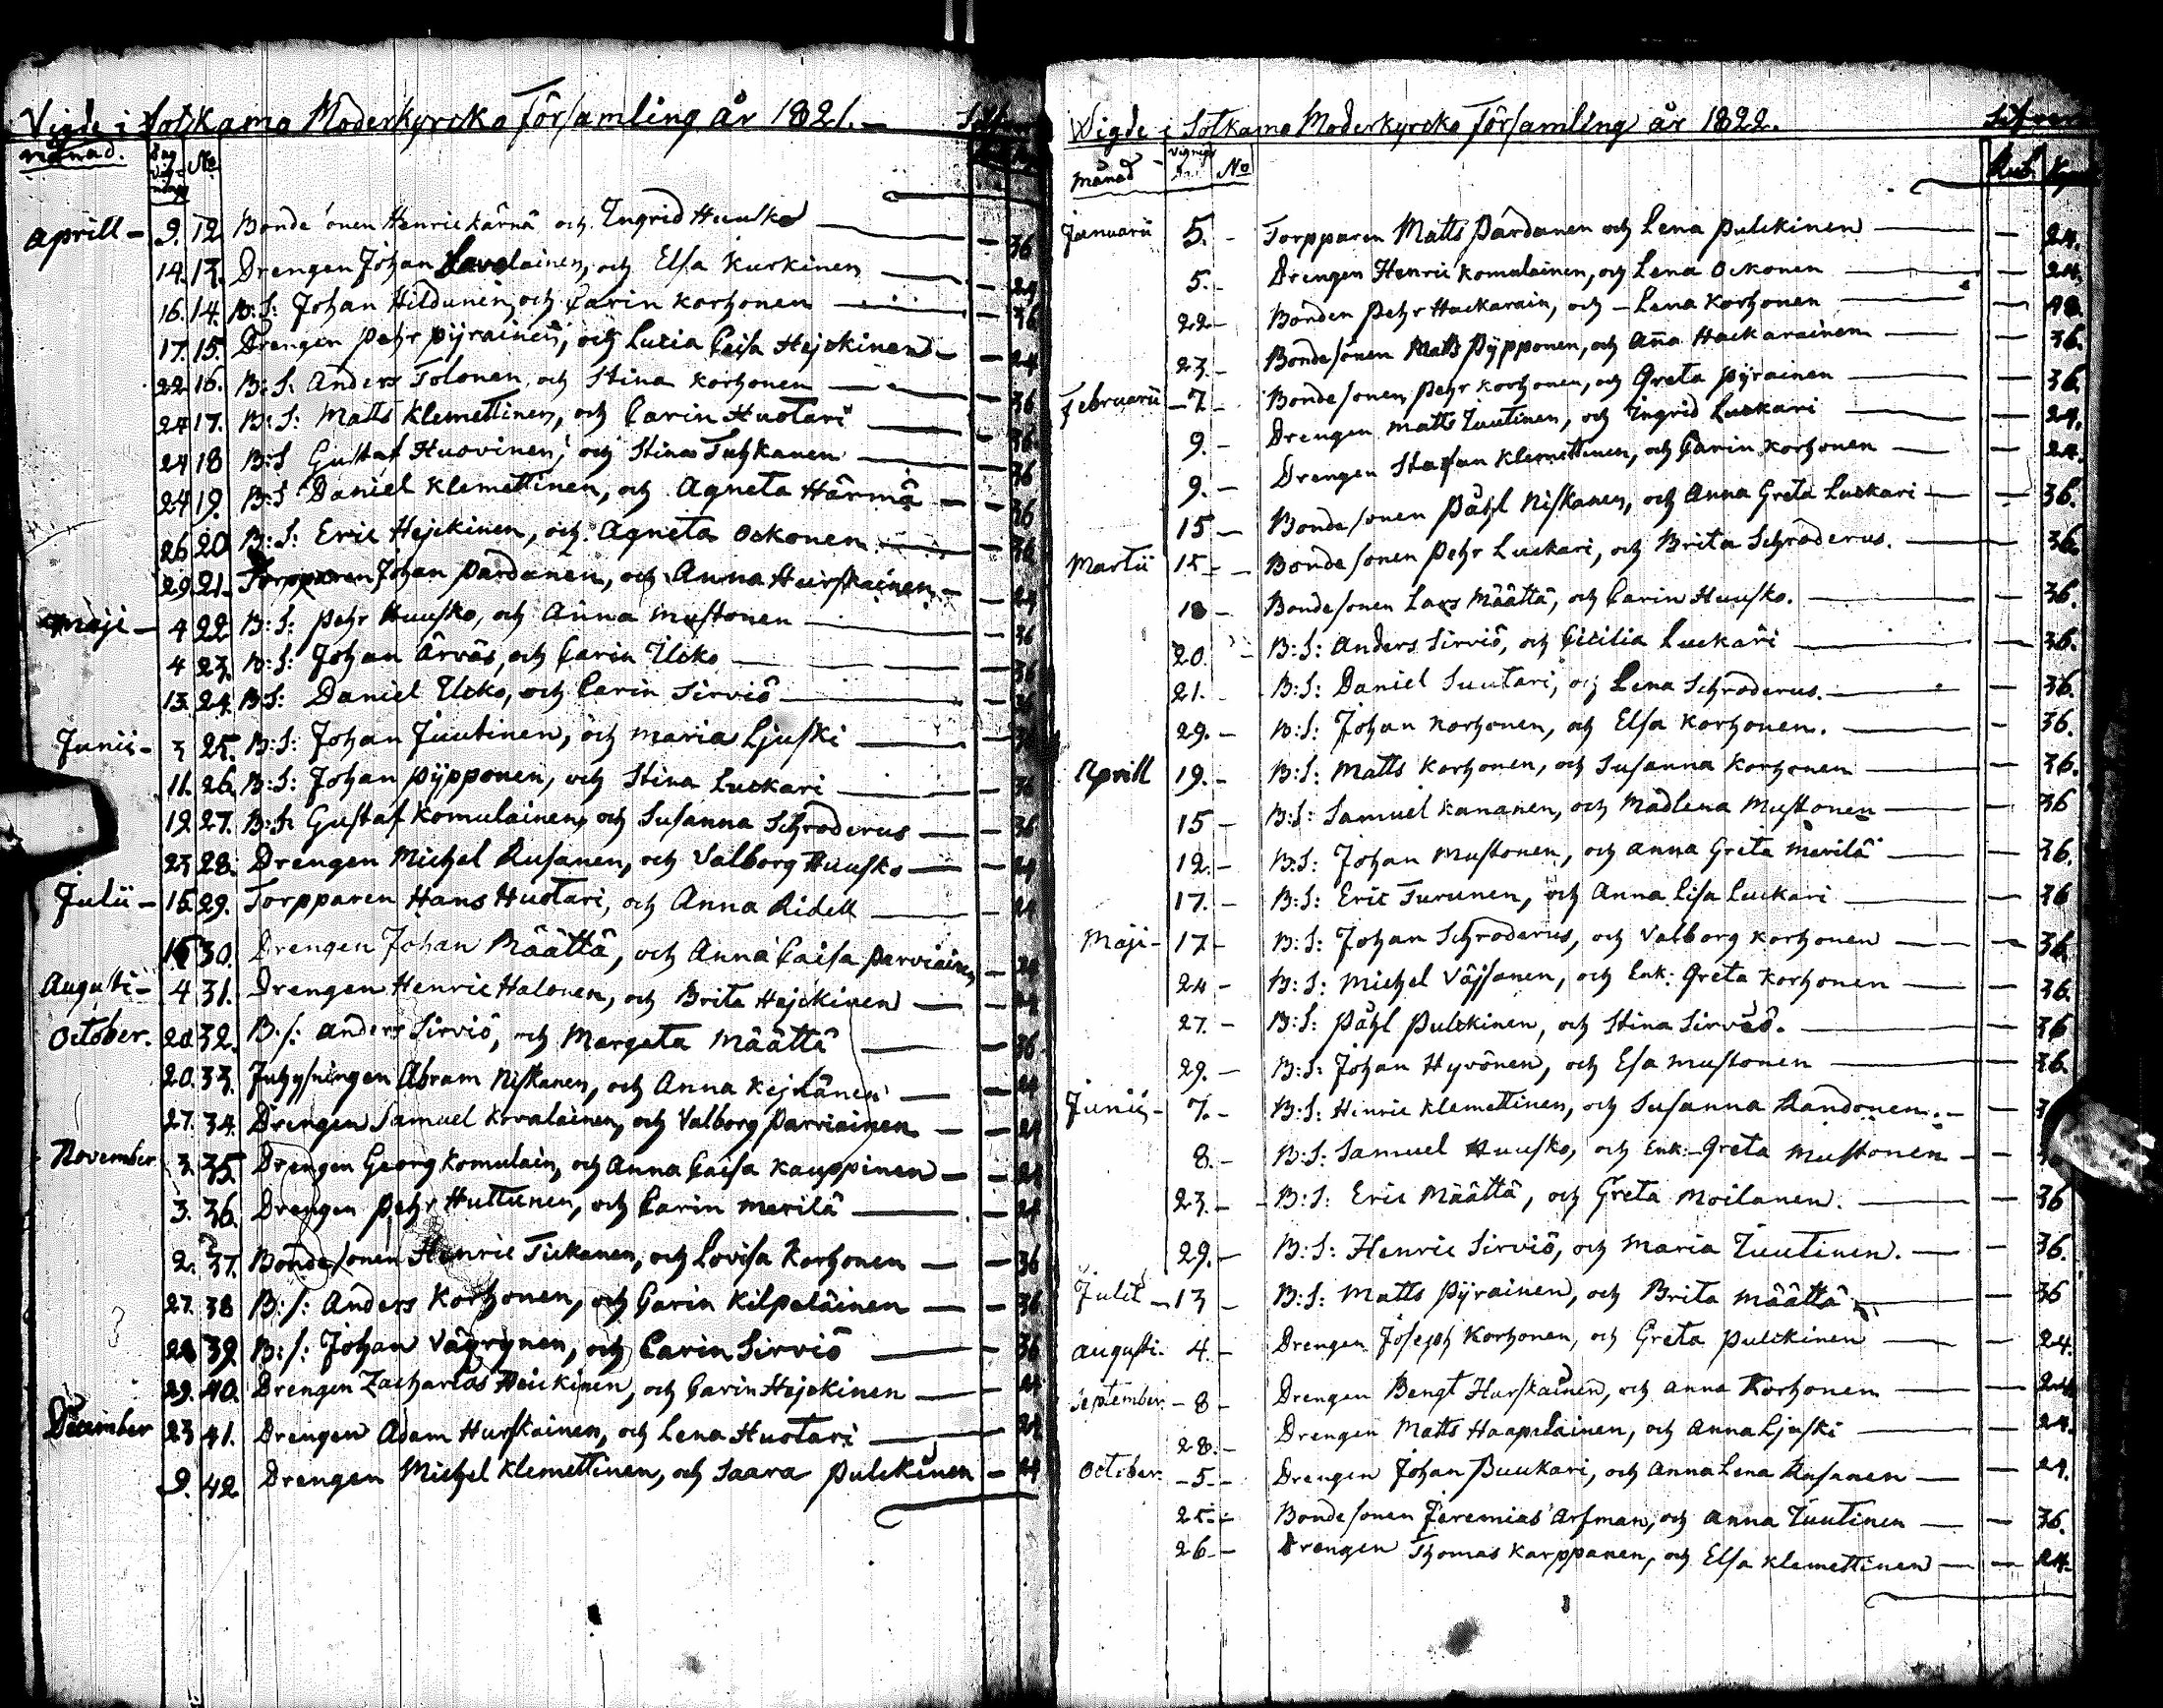 Vigde i Sotkamo Moderkyrcko Församling år 1821.
månad. Dag Vig-ning No
Aprill - 9. 12. Bonde sonen Henric Kärnä och Ingrid Huusko — 36
14. 13. Drengen Johan Lavolainen, och Elsa Kurkinen — 24
16. 14. B: S: Johan Hildunen, och Carin Korhonen — 36
17. 15. Drengen Pehr Pyrainen, och Lucia Caisa Hejckinen — 24
22 16. B: S: Anders Tolonen, och Stina Korhonen — 36
24 17. B: S: Matts Klemettinen, och Carin Huotari — 36.
24 18 B: S Gustaf Huovinen, och Stina Tuhkanen — 36
24 19. B: S Daniel Klemettinen, och Agneta Härmä — 36
26 20 B: S: Eric Hejckinen, och Agneta Ockonen — 36
29. 21. Torpparen Johan Pardanen, och Anna Hurskainen — 24
Maji - 4 22 B: S: Pehr Huusko, och Anna Mustonen — 36
4 23. B: S: Johan Ärväs, och Carin Ucko — 36
13. 24. B: S: Daniel Ucko, och Carin Sirviö — 36
Junii - 3 25. B: S: Johan Juutinen, och Maria Ljuski — 36
11. 26. B: S: Johan Pypponen, och Stina Luckari — 36
19. 27. B: S: Gustaf Komulainen, och Susanna Schroderus — 36
23 28. Drengen Michel Rusanen, och Valborg Huusko — 24
Julii - 15. 29. Torpparen Hans Huotari, och Anna Ridell — 24
15 30. Drengen Johan Määttä, och Anna Caisa Parviainen — 24
Augusti - 4 31. Drengen Henric Halonen, och Brita Hejckinen — 24
October. 20. 32. B: S: Anders Sirviö, och Margeta Määttä — 36
20. 33. Inhysningen Abram Niskanen, och Anna Kejnänen — 24
27. 34. Drengen Samuel Kovalainen, och Valborg Parviainen — 24
November 3. 35 Drengen Georg Komulain, och Anna Caisa Kauppinen — 24
3. 36. Drengen Pehr Huttunen, och Carin Merilä — 24
2. 37. Bondesonen Henric Tickanen, och Lovisa Korhonen — 36
27. 38 B: S: Anders Korhonen, och Carin Kilpeläinen — 36
28 39. B: S: Johan Väyrynen, och Carin Sirviö — 36
29. 40. Drengen Zacharias Heickinen, och Carin Hejckinen — 24
December 23 41. Drengen Adam Hurskainen, och Lena Huotari — 24
9. 42. Drengen Michel Klemettinen, och Saara Pulckinen — 24
Wigde i Sotkamo Moderkyrcko Församling år 1822.
Månad Vignings No Rub. Kop
Januarii 5. - Torpparen Matts Pardanen och Lena Pulckinen — 24.
5. - Drengen Henric Komulainen, och Lena Ockonen — 24.
22 - Bonden Pehr Hackarain, och Lena Korhonen — 48.
23. - Bondesonen Matts Pypponen, och Anna Hackarainen — 36.
Februarii - 7 - Bondesonen Pehr Korhonen, och Greta Pyrainen — 36.
9. - Drengen Matts Juutinen, och Ingrid Luckari — 24.
9. - Drengen Stafan Klemettinen, och Carin Korhonen — 24.
15 - Bondesonen Påhl Niskanen, och Anna Greta Luckari — 36.
Martii 15 - Bondesonen Pehr Luckari, och Brita Schroderus. — 36.
18 - Bondesonen Lars Määttä, och Carin Huusko. — 36.
20. - B: S: Anders Sirviö, och Cicilia Luckari — 36.
21. - B: S: Daniel Suutari, och Lena Schroderus. — 36.
29. - B: S: Johan Korhonen, och Elsa Korhonen. — 36.
Aprill 19. - B: S: Matts Korhonen, och Susanna Korhonen — 36.
15 - B: S: Samuel Kananen, och Madlena Mustonen — 36
12. - B: S: Johan Mustonen, och Anna Greta Merilä — 36.
17. - B: S: Eric Turunen, och Anna Lisa Luckari — 36
Maji - 17 - B: S: Johan Schroderus, och Valborg Korhonen — 36.
24 - B: S: Michel Väjsanen, och Enk: Greta Korhonen — 36.
27. - B: S: Påhl Pulckinen, och Stina Sirviö. — 36
29. - B: S: Johan Hyvönen, och Esa Mustonen — 36.
Junii - 7. - B: S: Henric Klemettinen, och Susanna Randonen. — 3
8. - B: S: Samuel Huusko, och Enk: Greta Mustonen —
23. - B: S: Eric Määttä, och Greta Moilanen. — 36
29. - B: S: Henric Sirviö, och Maria Juutinen. — 36.
Julii - 13 - B: S: Matts Pyrainen, och Brita Määttä — 36
Augusti. 4. - Drengen Joseph Korhonen, och Greta Pulckinen — 24.
September. - 8 - Drengen Bengt Hurskainen, och Anna Korhonen — 24
28. - Drengen Matts Haapalainen, och Anna Ljuski — 24.
October. - 5 - Drengen Johan Puukari, och Anna Lena Rusanen — 24.
25. - Bondesonen Jeremias Arfman, och Anna Juutinen — 36.
26. - Drengen Thomas Karppanen, och Elsa Klemettinen — 24.